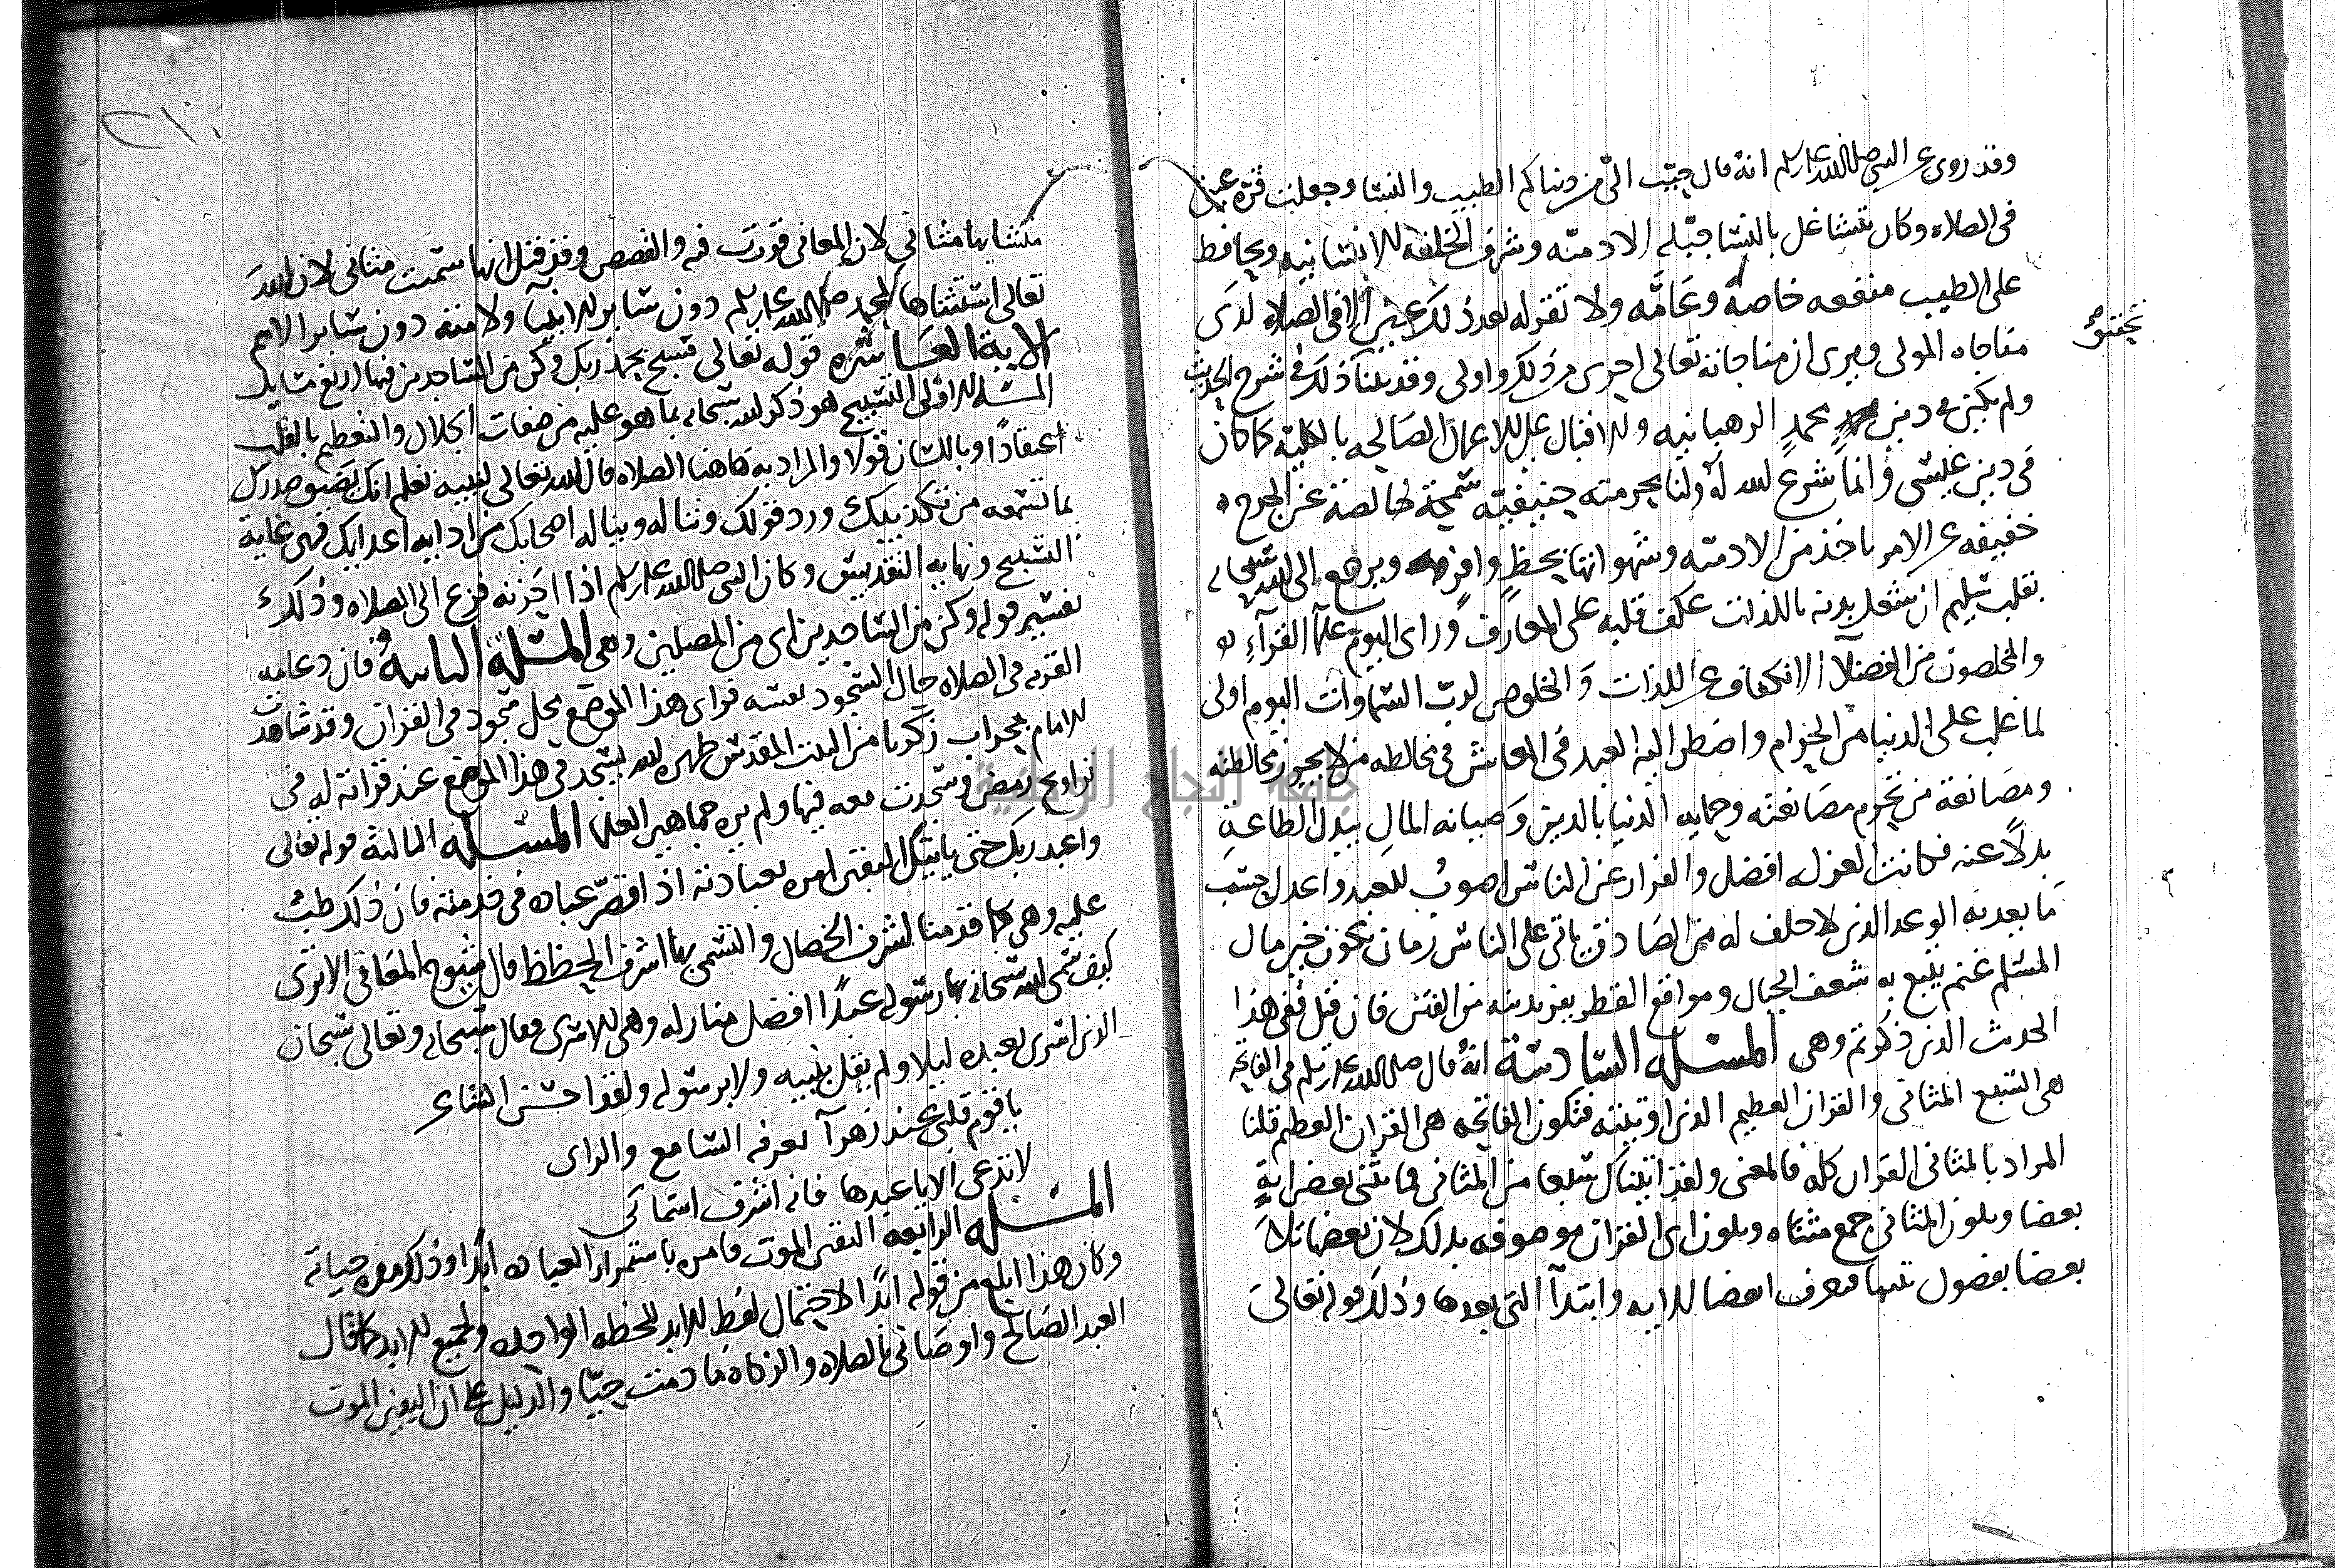 وقد روى عن النبي صلى الله عليه وسلم انه قال حبب الي من دنياكم الطيب والنسا وجعلت قرة عيني
في الصلاه وكان يتشاغل بالنسا جبلة الادميه وشرف الخلقه الانسانيه ويحافظ
على الطيب منفعه خاصة وعامة ولا تقر له بعد ذلك عين الا في الصلاه لدى
مناجاه المولى ويرى ان مناجاته تعالى احرى من ذلك واولى وقد بينا ذلك في شرح الحديث
ولم يكن في دين محمد الرهبانيه والاقبال على الاعمال الصالحه بالكلية كما كان
في دين عيسى وانما شرع الله له ولنا بحرمته حنيفية سمحة خالصة عن الحرج
خفيفه عن الامر ياخذ من الادميه وشهواتها بحظ وافر ويرجع الى الله سبحانه
بقلب سليم ان شغل بدنه باللذات عكف قلبه على المعارف وراى اليوم علما القرآء
والمخلصون من الفضلآ الانكفاف عن اللذات والخلوص لرب السماوات اليوم اولى
لما غلب على الدنيا من الحرام واضطر اليه العبد في المعاش في مخالطه من لا يجوز مخالطته
ومصانعة من تحرم مصانعته وحمايه الدنيا بالدين وصيانه المال ببدل الطاعة
بدلا عنه فكانت العزله افضل والفرار عن الناس اصوب للعبد واعدل حسب
ما بعد به الوعد الذي لا خلف له من الصادق ياتي على الناس زمان يكون خير مال
المسلم غنم يتبع به شعف الجبال ومواقع القطر يفر بدينه من الفتن فان قيل ففي هذا
الحدث الذي ذكرتم وهي المسله السادسة انه قال صلى الله عليه وسلم في الفاتحه
هي السبع المثاني والقران العظيم الذي اوتيته فتكون الفاتحه هي القران العظيم قلنا
المراد بالمثاني القران كله فالمعنى ولقد اتيناك سبعا من المثاني مما ثنى بعض ايه
بعضا ويكون المثاني جمع مثناه ويكون اي القران موصوفه بذلك لان بعضها تلا
بعضا بفصول بينها فتعرف انقضا الايه وابتدآ التي بعدها وذلك قوله تعالى
متشابها مثاني لان المعاني قررت فيه والقصص وقد قيل انها سميت مثاني لان الله
تعالى استثناها لمحمد صلى الله عليه وسلم دون ساير الانبيآ ولامته دون ساير الامم
الاية العاشره قوله تعالى فسبح بحمد ربك وكن من الساجدين فيها اربع مسايل
المسله الاولى التسبيح هو ذكر الله سبحانه بما هو عليه من صفات الجلال والتعظيم بالقلب
اعتقادا وباللسان قولا والمراد به هاهنا الصلاه قال الله تعالى لنبيه نعلم انك يضيق صدرك
بما تسمعه من تكذيبك ورد قولك وتناله ويناله اصحابك من اذايه اعدايك فهي غاية
التسبيح ونهايه التقديس وكان النبي صلى الله عليه وسلم اذا احزنه فزع الى الصلاه وذلك
تفسير قوله وكن من الساجدين اي من المصلين وهي المسله الثانيه فان دعامه
القربه في الصلاه حال السجود بعينه فراى هذا الموضع محل سجود في القران وقد شاهدت
الامام بمحراب زكريا من البيت المقدس طهره الله يسجد في هذا الموضع عند قراته له في
تراويح رمضن وسجدت معه فيها ولم يره جماهير العلما المسله الثالثة قوله تعالى
واعبد ربك حتى ياتيك اليقين امره بعبادته اذ اقصر عباده في خدمته فان ذلك طبه
عليه وهي كما قدمنا اشرف الخصال والتسمي بها اشرف الحظاظ قال شيوخ المعاني الا ترى
كيف سمى الله سبحانه بها رسوله عبدا افضل منازله وهي الاسرى فقال سبحانه وتعالى سبحان
الذي اسرى بعبده ليلا ولم يقل بنبيه ولا برسوله ولقد احسن الشاعر
يا قوم قلبي عند زهرآ يعرفه السامع والراي
لا تدعني الا بيا عبدها فانه اشرف اسمائي
المسله الرابعه اليقين الموت فامره باستمرار العباده ابدا وذلك مده حياته
وكان هذا ابلغ من قوله ابدا لاحتمال لفظ الابد للحظه الواحده ولجميع الابد كما قال
العبد الصالح واوصاني بالصلاه والزكاة ما دمت حيا والدليل على ان اليقين الموت